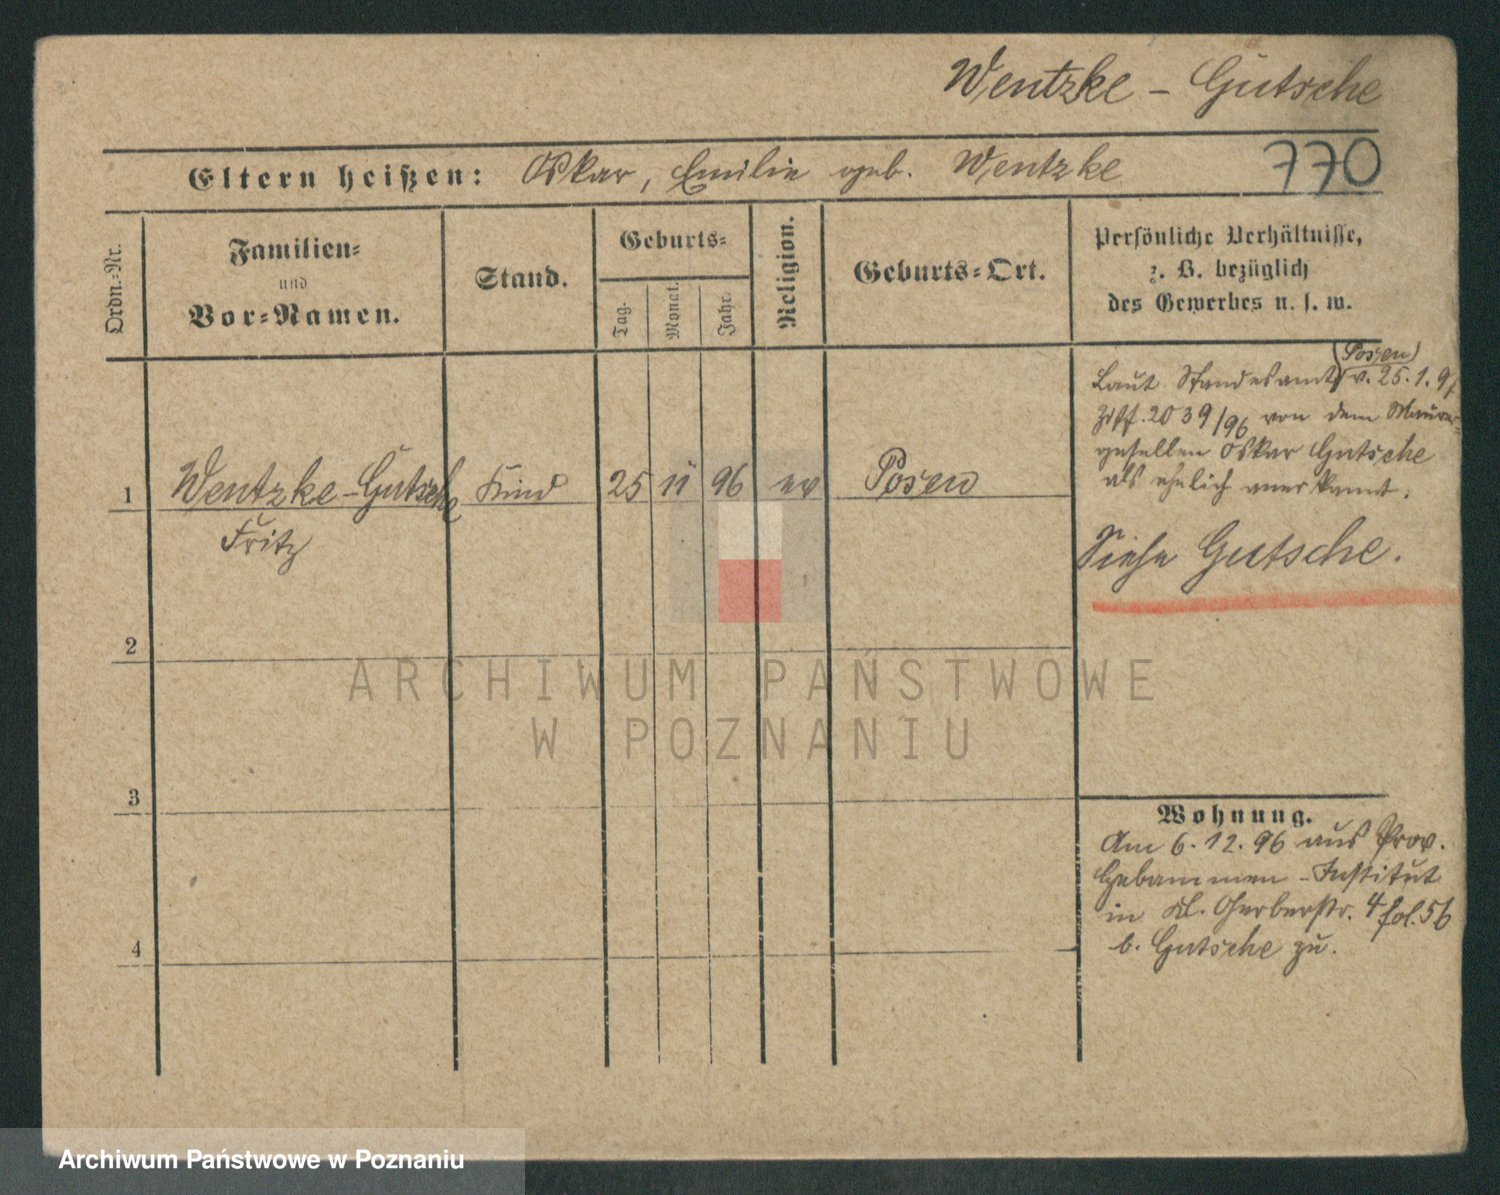 Wentzke - Gutsche
Eltern heißen: Oskar, Emilie geb. Wentzke
770
Ordn.-Nr.
Familien-
und
Vor-Namen.
Stand.
Geburts-
Tag.
Monat.
Jahr.
Religion.
Geburts-Ort.
Persönliche Verhältnisse,
z. B. bezüglich
des Gewerbes u. s. w.
(Posen)
Laut Standesamt v. 25.1.97
Ziff. 2039/96 von dem Maurer-
gesellen Oskar Gutsche
als ehelich anerkannt.
1 Wentzke-Gutsche Kind 25 11 96 ev Posen
Fritz
Siehe Gutsche.
2
3
4
Wohnung.
Am 6.12.96 aus Prov.
Hebammen-Institut
in Kl. Gerberstr. 4 fol. 56
b. Gutsche zu.
ARCHIWUM PAŃSTWOWE
W POZNANIU
Archiwum Państwowe w Poznaniu